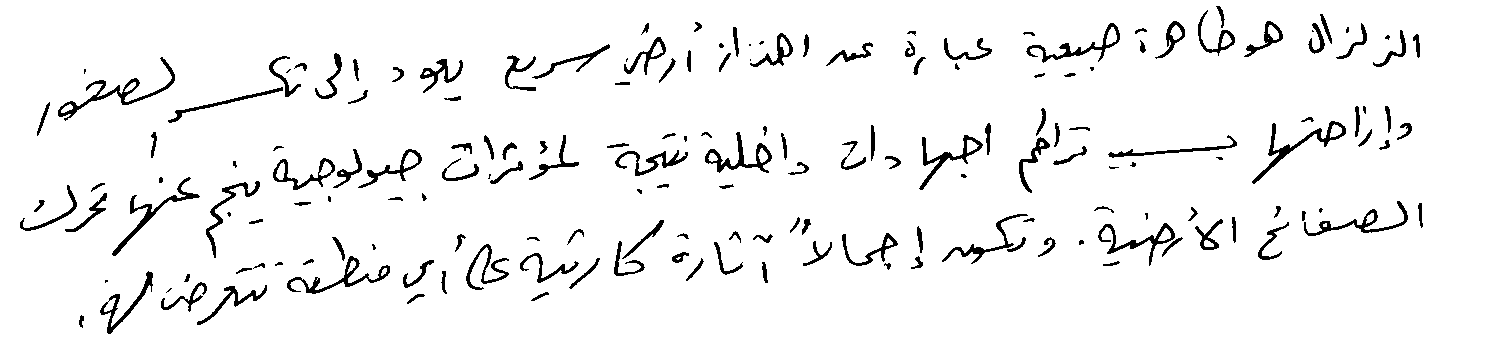 الزلزال هو ظاهرة طبيعية عبارة عن اهتزاز أرضي سريع يعود إلى تكسر الصخور
وإزاحتها بسبب تراكم اجهادات داخلية نتيجة لمؤثرات جيولوجية ينجم عنها تحرك
الصفائح الأرضية. وتكون إجمالاً آثارة كارثية على أي منطقة تتعرض له.